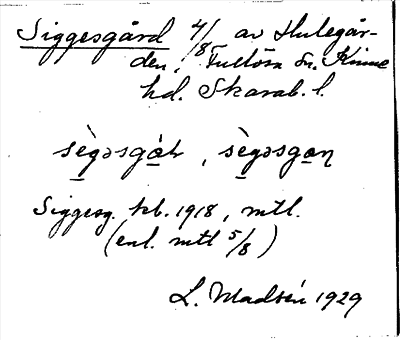 Siggesgård 4/8 av Hulegår-
den, Fullösa sn. Kinne
hd. Skarab. l.
sègəsgaʈ, sègəsgaɳ
Siggesg. kl. 1918, mtl.
(enl. mtl 5/8)
L. Madsén 1929